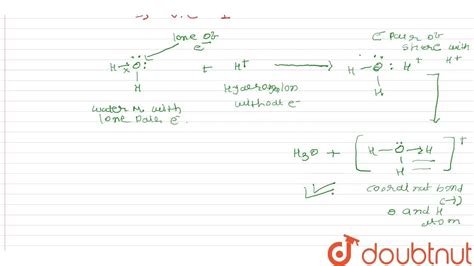 lone Ob
e⁻
H O : + H⁺ → H — O : H⁺ H⁺
H
H
Hydrogen Ion
without e⁻
water M. with
lone Pair e⁻
e⁻ Pair ob
share with
H₃O + [ H — O → H ]⁺
H
coordinat bond
(→)
O and H
atom
doubtnut